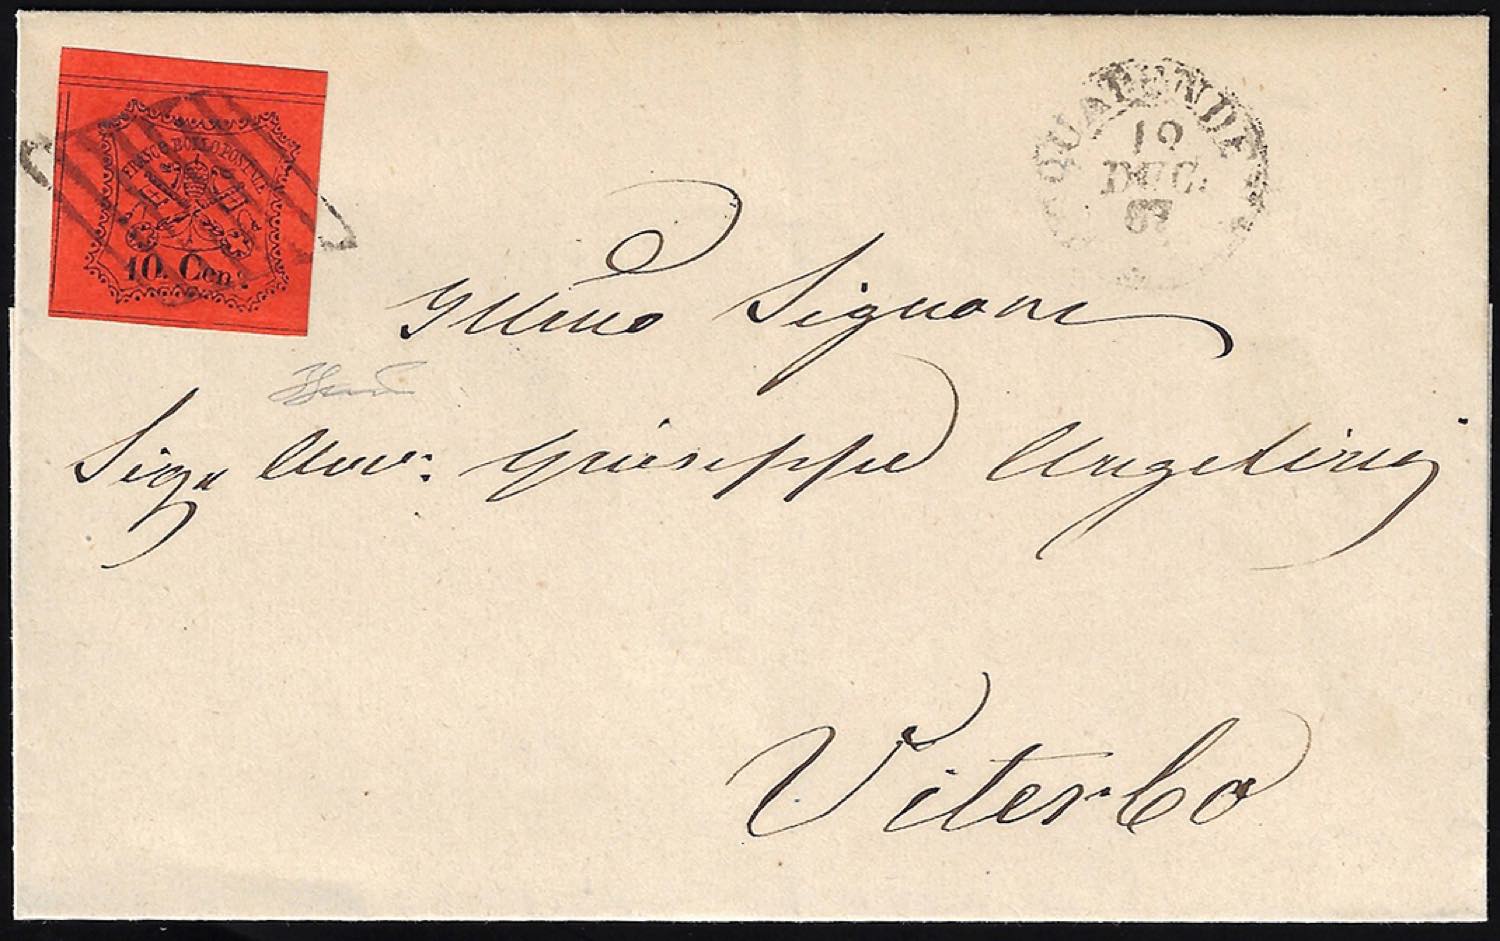 FRANCO BOLLO POSTALE
10. Cen.
QUAPENDE
19
DEC.
67
Illmo Signore
Sigr Avv: Giuseppe Angelini
Viterbo